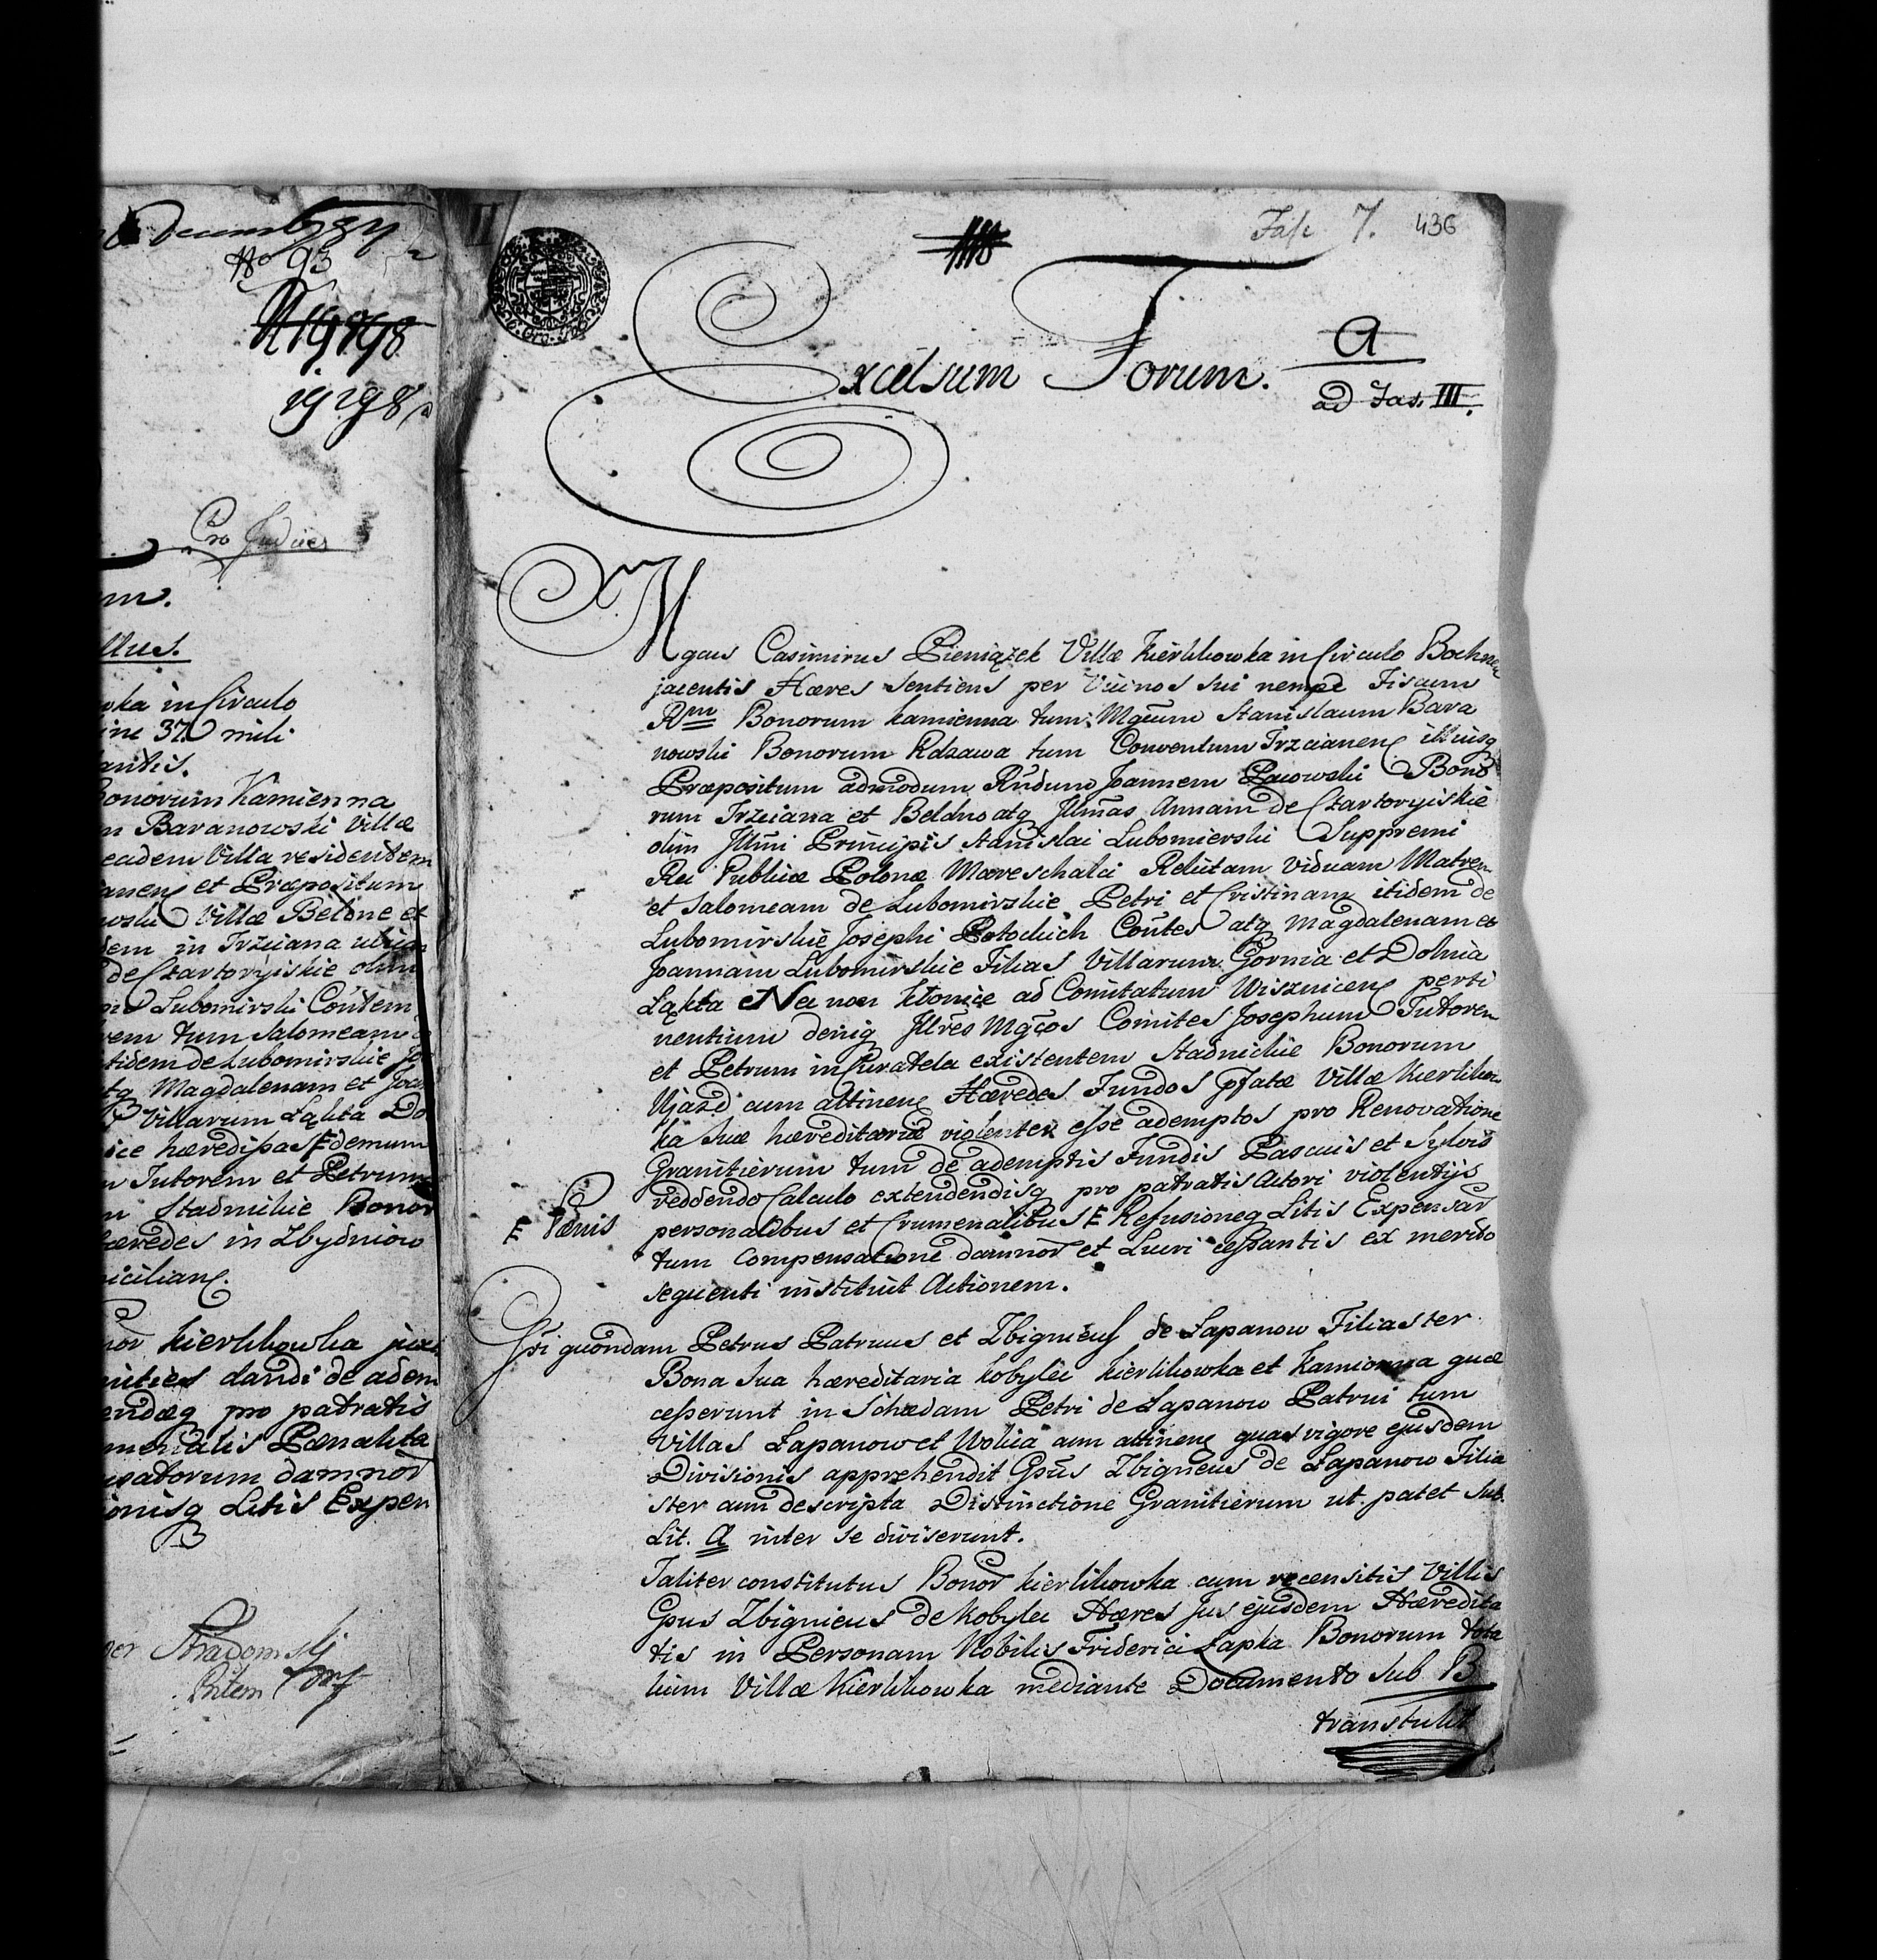 Decembr 784
No 93
19198
19198
Pro Judice
m.
llus.
wka in Circulo
ine 37. mili
antis.
Bonorum Kamienna
m Baranowski Villæ
eadem Villa residentem
anenς et Præpositum
owski Villæ Beldne et
dem in Trzciana ubiqς
de Czartoryiskie olim
Lubomirski Coñtem
rem tum Salomeam
itidem de Lubomirskie Jo
atq Magdalenam et Joa
Villarum Łąkta Do
ice hæredissas F demum
m Tutorem et Petrum
m Stadnickie Bonor
hæredes in Zbydniow
iciliang.
nor Kierlikowka jux
nities dandi de adem
endæq pro patratis
menalis Pænalita
satorum damnor
onisq Litis Expen
Stradomski
mp
II
Fasc 7. 436
Excelsum Forum.
A
ad Fas. III.
Mgcus Casimirus Pieniążek Villæ Kierlikowka in Circulo Bochnen
jacentis Hæres sentiens per Vicinos sui nempe Fiscum
Rum Bonorum Kamienna tum Mgcum Stanislaum Bara
nowski Bonorum Rdzawa tum Conventum Trzcianenς illiusq
Præpositum admodum Rñdum Joannem Pacowski Bono
rum Trzciana et Beldno atq Jllmas Annam de Czartoryiskie
olim Jllmi Principis Stanislai Lubomierski Suppremi
Rei Publicæ Polonæ Mareschalci Relictam Viduam Matrem
et Salomeam de Lubomirskie Petri et Cristinam itidem de
Lubomirskie Josephi Potockich Coñtes atq Magdalenam et
Joannam Lubomirskie Filias Villarum Gornia et Dolnia
Łąkta Nec non Kłonice ad Comitatum Wisznicenς perti
nentium deniq Jllres Mgcos Comites Josephum Tutorem
et Petrum in Curatela existentem Stadnickie Bonorum
Ujazd cum attinenς Hæredes Fundos pfatæ Villæ Kierliko
ka suæ hæreditariæ violenter esse ademptos pro Renovatione
Granitierum tum de ademptis Fundis Pascuis et Sylvis
reddendo Calculo extendendisq pro patratis Actori violentijs
F Pænis personalibus et Crumenalibus F Refusioneq Litis Expensar
tum compensatione damnor et Lucri cessantis ex merito
sequenti instituit Actionem.
Gsi quondam Petrus Patruus et Zbigneus de Łapanow Filiaster
Bona sua hæreditaria Kobylec Kierlikowka et Kamionna quæ
cesserunt in Schædam Petri de Łapanow Patrui tum
Villas Łapanow et Wolica cum attinenς quas vigore ejusdem
Divisionis apprehendit Gsus Zbigneus de Łapanow Filia
ster cum descripta Distinctione Granitierum ut patet sub
Lit. A inter se diviserunt.
Taliter constitutus Bonor Kierlikowka cum recensitis Villis
Gsus Zbignieus de Kobylec Hæres Jus ejusdem Hæredita
tis in Personam Nobilis Friderici Łapka Bonorum tota
lium Villæ Kierlikowka mediante Documento sub B
transtulit